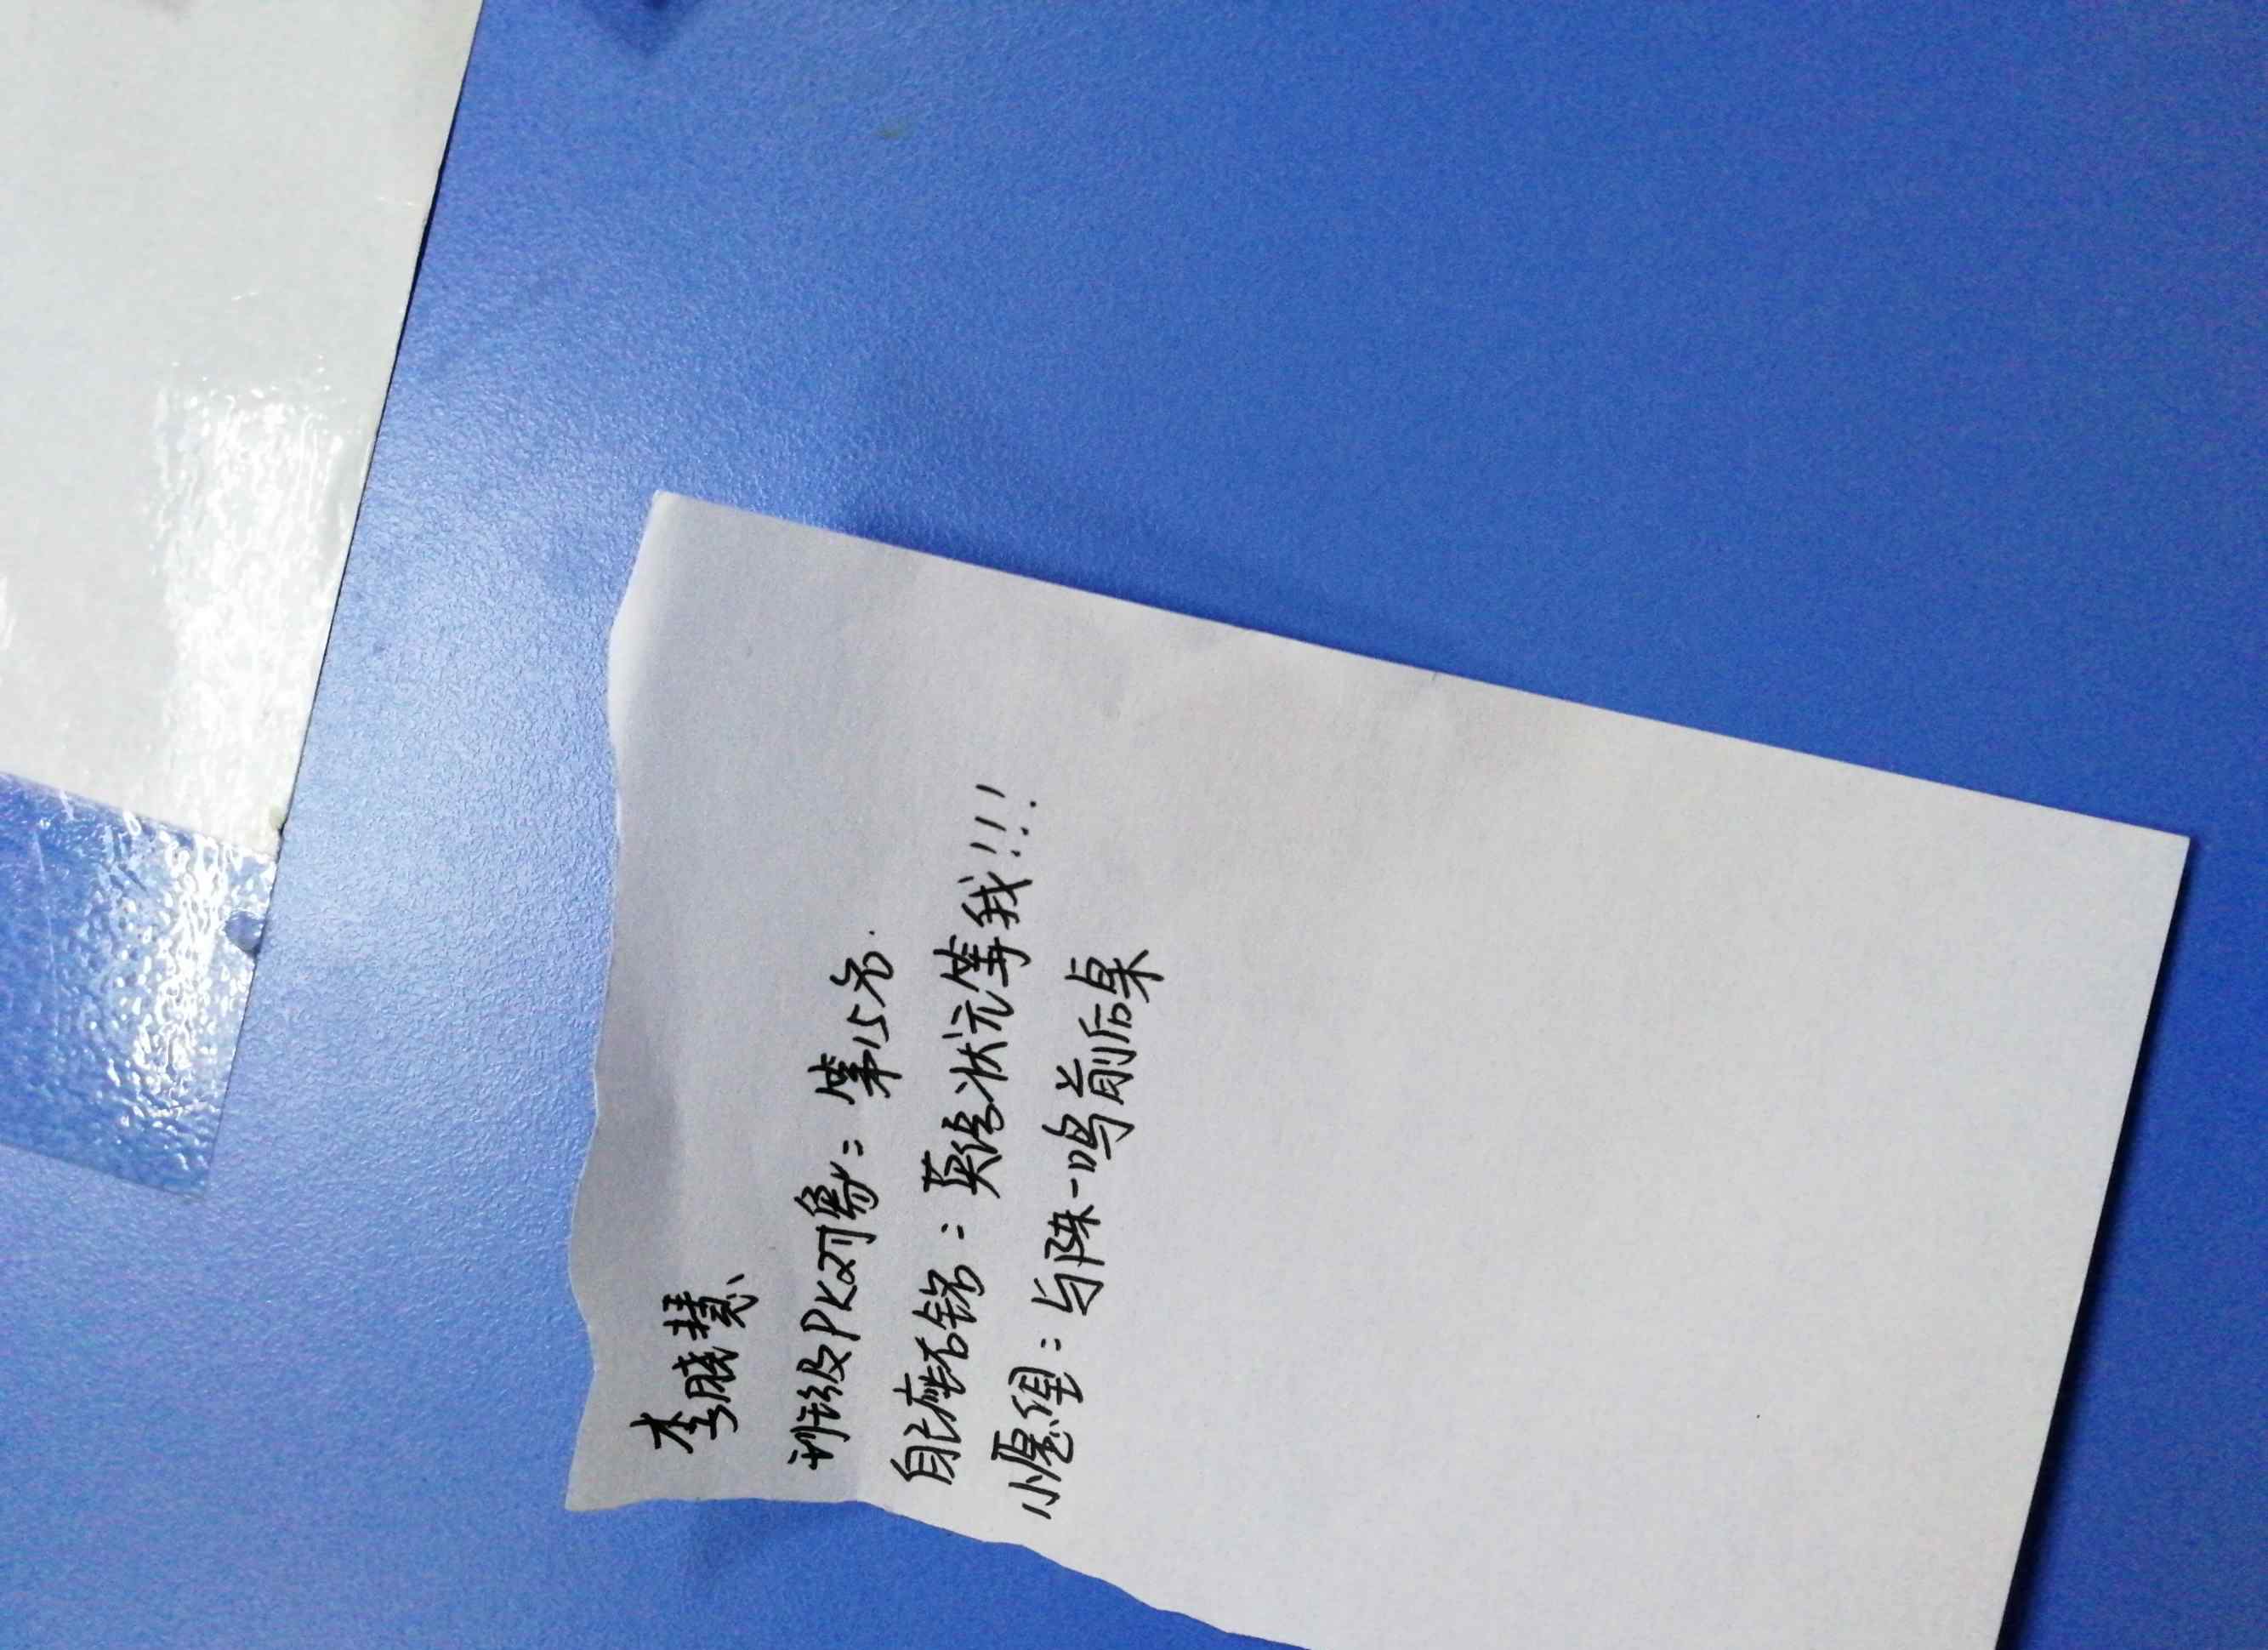 李晓慧
班级PK对象：第15名.
自己座右铭：英语状元等我!!!
小愿望：与陈一鸣前后桌